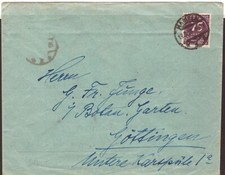 Herrn
G. Fr. Junge,
Botan. Garten
Göttingen
Untere Karspüle 1a
75